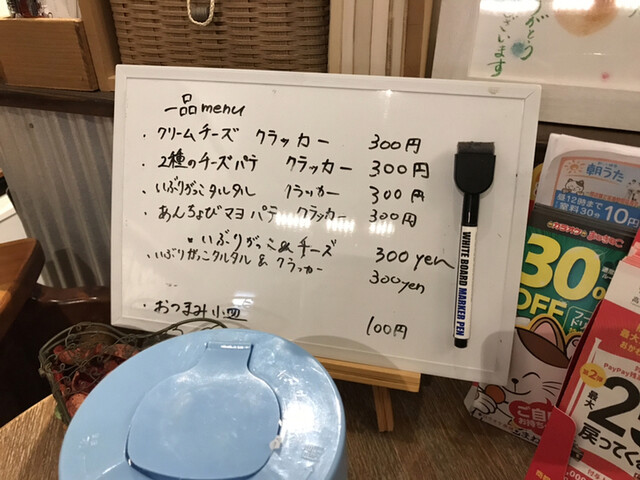 がとう
ございます
一品menu
・クリームチーズ クラッカー 300円
・2種のチーズパテ クラッカー 300円
・いぶりがっこタルタル クラッカー 300円
・あんちょびマヨ パテ クラッカー 300円
・いぶりがっこ&チーズ 300yen
・いぶりがっこタルタル & クラッカー 300yen
・おつまみ小皿 100円
WHITE BOARD MARKER PEN
朝うた
昼12時まで
室料30分 10円
30%
OFF
PayPay
最大
戻ってく